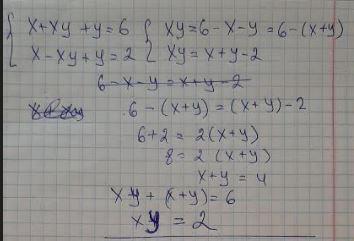 { x+xy+y=6 { xy=6-x-y=6-(x+y)
{ x-xy+y=2 { xy=x+y-2
6-x-y=x+y-2
6-(x+y)=(x+y)-2
6+2=2(x+y)
8=2(x+y)
x+y=4
xy+(x+y)=6
xy=2